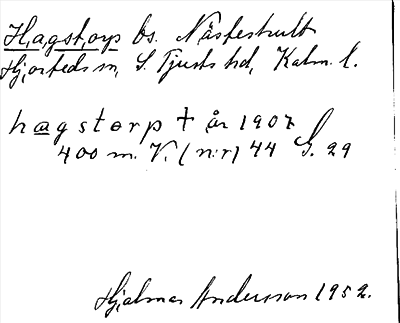 Hagstorp bs. Näshestult
Hjorteds sn, S. Tjusts hd, Kalm. l.
hagstorp † år 1907
400 m. V. (n:r) 44 G. 29
Hjalmar Andersson 1952.